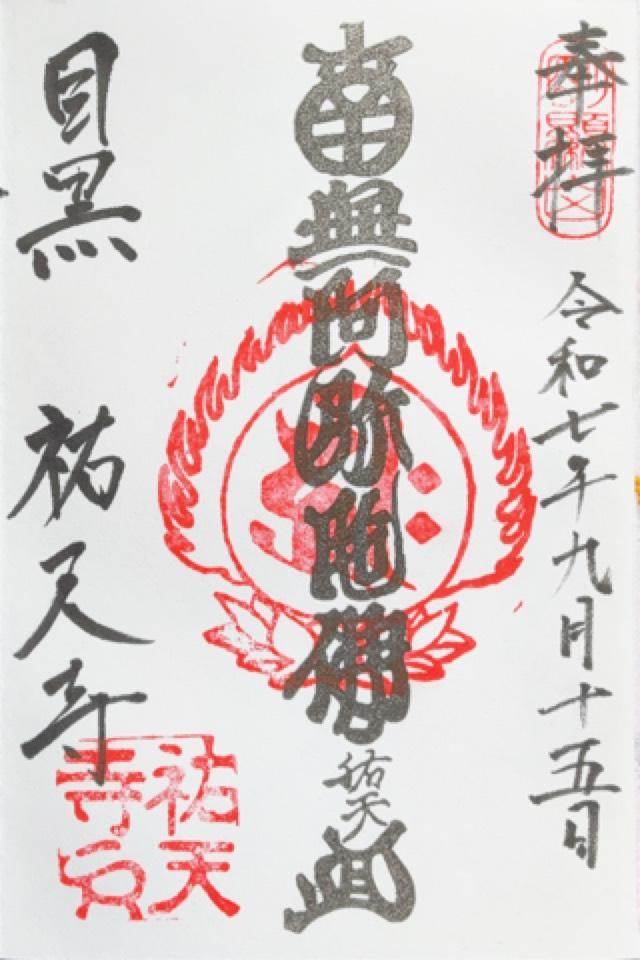 奉拝
令和七年九月十五日
南無阿弥陀佛
祐天
目黒 祐天寺
祐天寺印